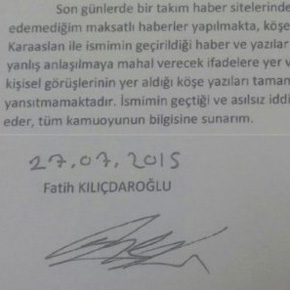 Son günlerde bir takım haber sitelerinde
edemediğim maksatlı haberler yapılmakta, köşe
Karaaslan ile ismimin geçirildiği haber ve yazılar
yanlış anlaşılmaya mahal verecek ifadelere yer v
kişisel görüşlerinin yer aldığı köşe yazıları tamam
yansıtmamaktadır. İsmimin geçtiği ve asılsız iddi
eder, tüm kamuoyunun bilgisine sunarım.
27.07.2015
Fatih KILIÇDAROĞLU